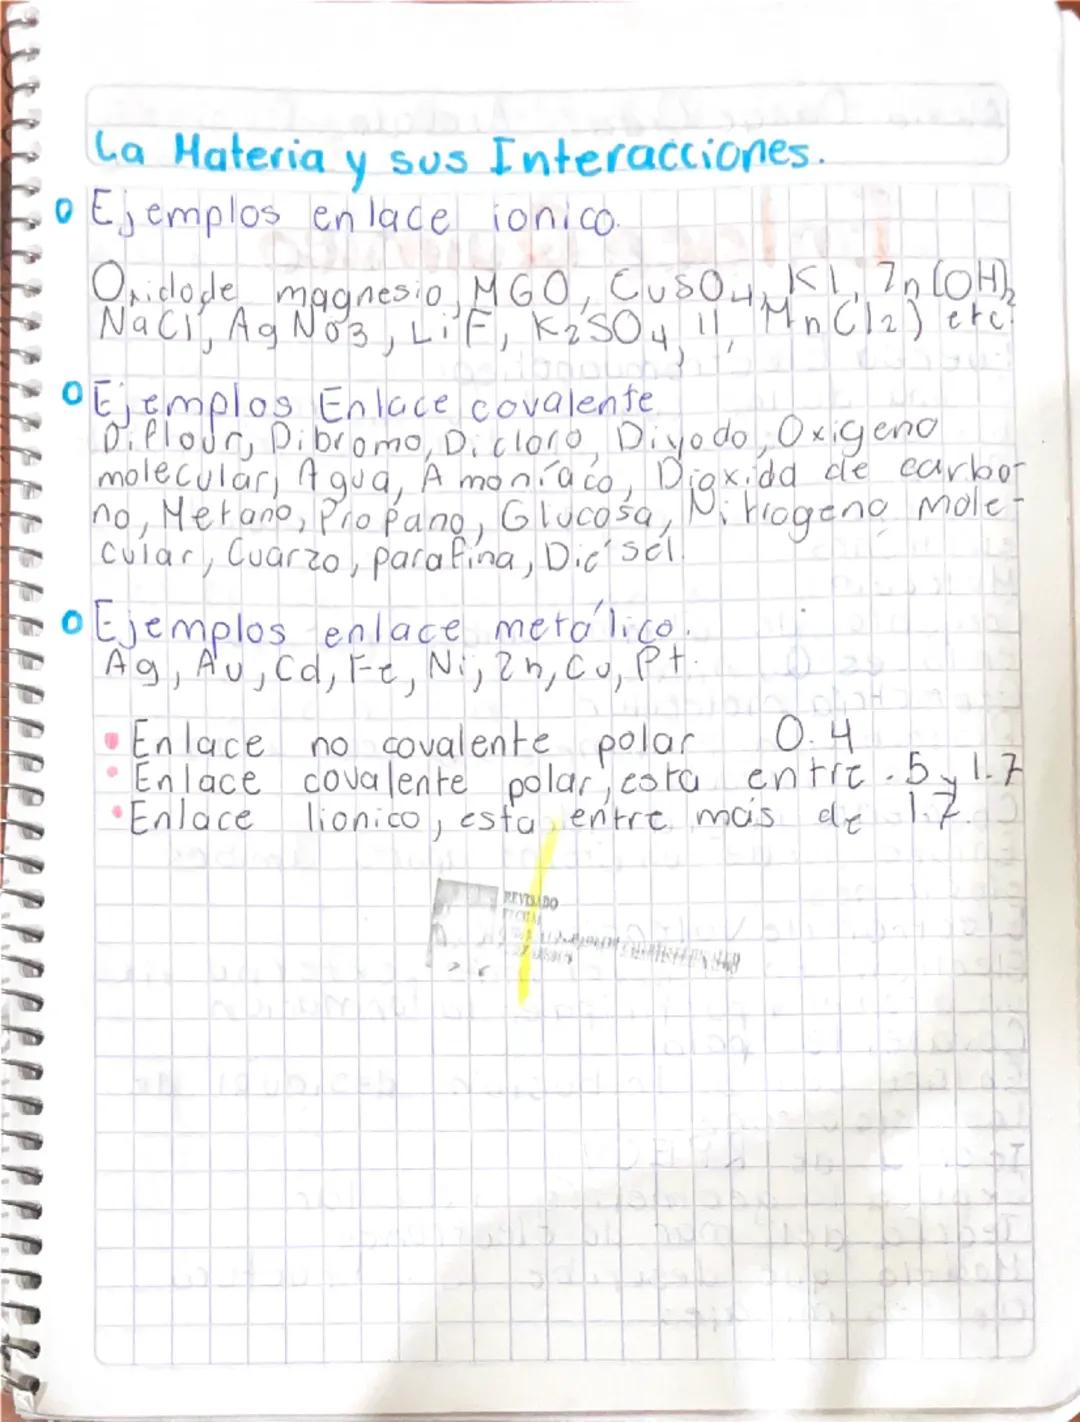 La Materia y sus Interacciones.
Ejemplos enlace ionico.
Oxido de magnesio, MGO, CuSO4, KI, Zn(OH)2
NaCl, AgNO3, LiF, K2SO4, II, MnCl2) etc.
Ejemplos Enlace covalente
Diflour, Dibromo, Dicloro, Diyodo, Oxigeno
molecular, Agua, Amoníaco, Dioxida de carbo-
no, Metano, Propano, Glucosa, Nitrogeno mole-
cular, Cuarzo, parafina, Diésel.
Ejemplos enlace metálico.
Ag, Au, Cd, Fe, Ni, Zn, Cu, Pt.
Enlace no covalente polar 0.4
Enlace covalente polar, esta entre .5 y 1.7
Enlace lionico, esta entre más de 1.7
REVISADO